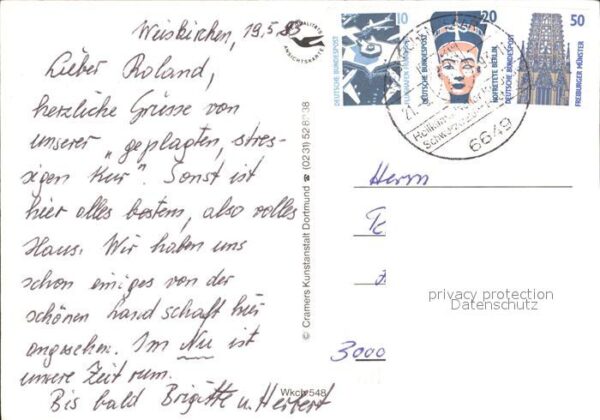 Weiskirchen, 19.5.93
Lieber Roland,
herzliche Grüsse von
unserer "geplagten, stres-
sigen Kur". Sonst ist
hier alles bestens, also volles
Haus. Wir haben uns
schon einiges von der
schönen Landschaft hier
angesehen. Im Nu ist
unsere Zeit rum.
Bis bald Brigitte u. Herbert
QUALITÄTS
ANSICHTSKARTE
© Cramers Kunstanstalt Dortmund ☎ (0231) 52 8
Wkch 548
10
DEUTSCHE BUNDESPOST
FLUGHAFEN FRANKFURT
20
DEUTSCHE BUNDESPOST
NOFRETETE BERLIN
50
DEUTSCHE BUNDESPOST
FREIBURGER MÜNSTER
6649
Herrn
3000
privacy protection
Datenschutz